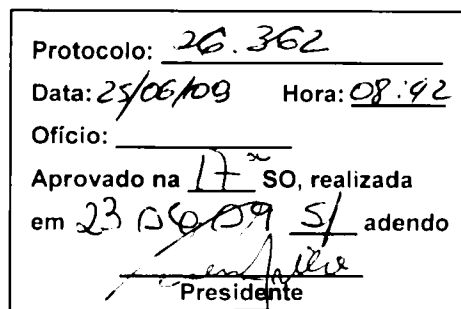 Protocolo: 26.362
Data: 25/06/09 Hora: 08:42
Ofício:
Aprovado na 17ª SO, realizada
em 23 06 09 S/ adendo
Presidente